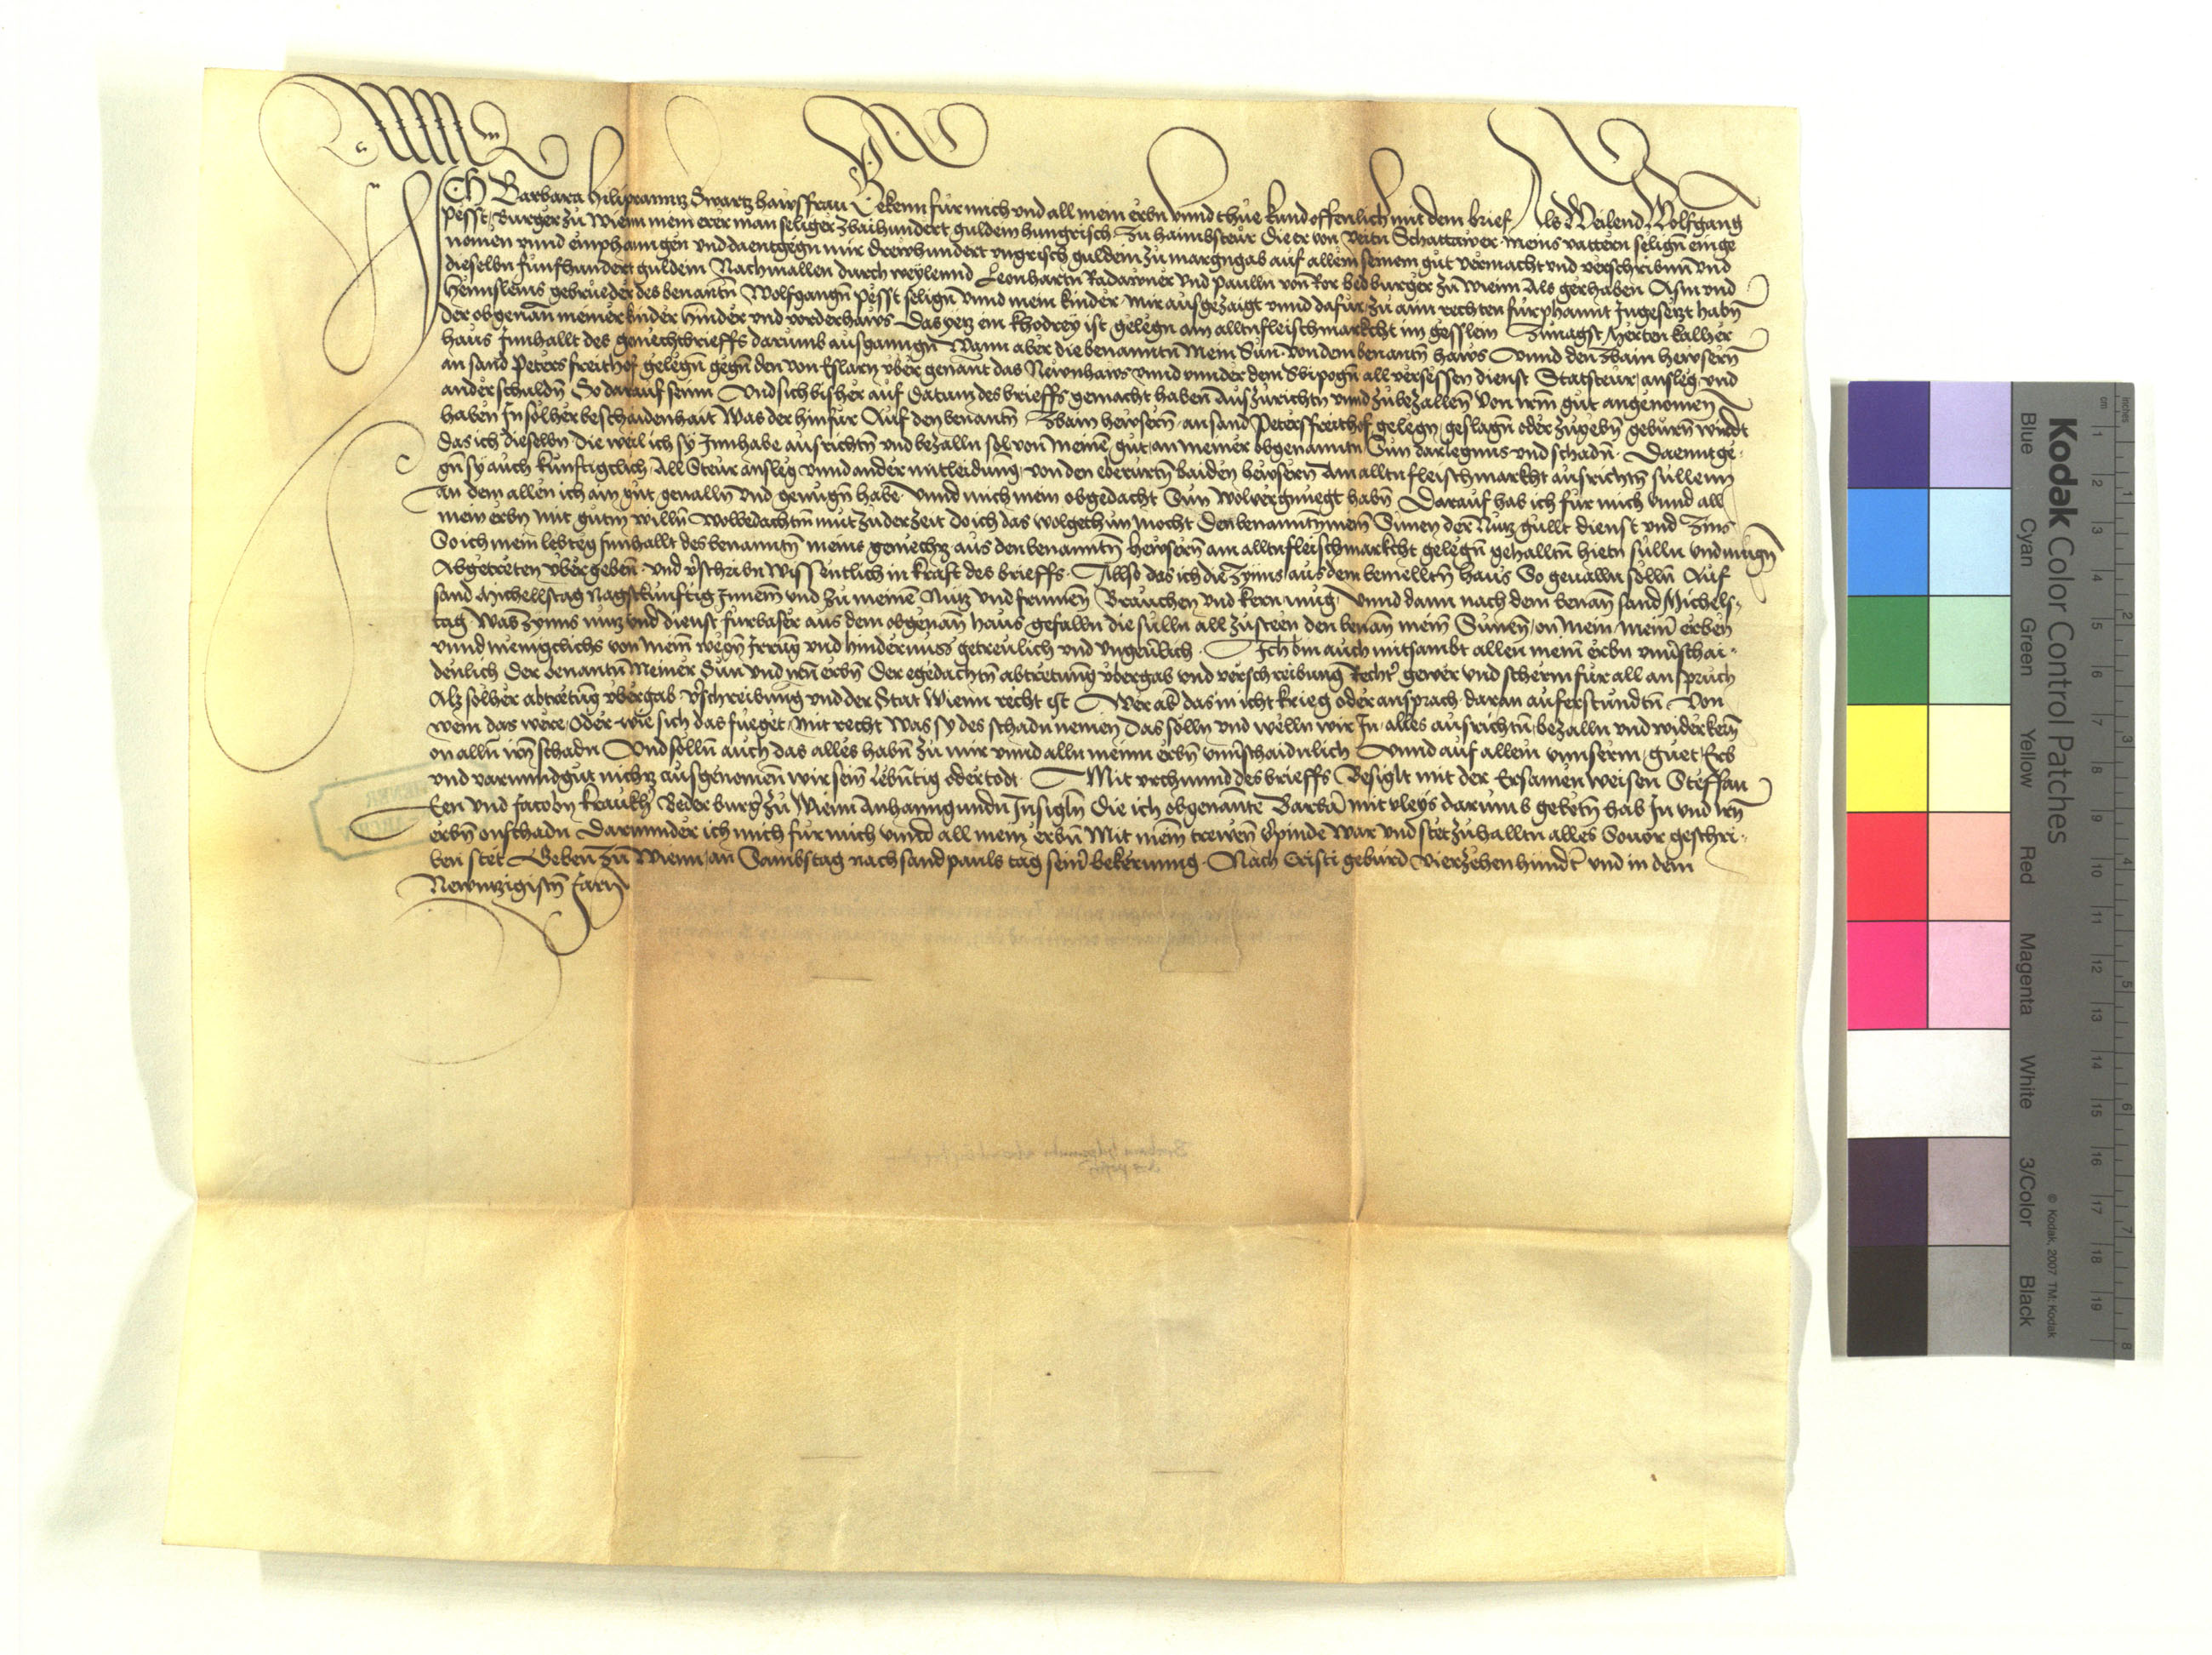 Ich Barbara Hiliprannntz Swartz hawsfrau Bekenn für mich und all mein erbn Vnnd thue kund offenlich mit dem brief Als Weilend Wolfgang
pesst Burger zu Wienn mein erer man seliger Zbaihundert guldem hungrisch Zu haimbsteur die er von Veitn Schattawer meins vattern selign einge
nomen vnnd emphanngen vnd daentgegn mir drewhundert vngrisch guldem zu margngab auf allem seinem gut vermacht vnd verschribnn vnd
dieselbn funfhundert guldein Nachmallen durch weylennd Leonhartn Radawner vnd paulln von Ror bed burger zu wienn Als gerhaben Asm vnd
Hennsleins gebrueder des benantn Wolfgangn pesst selign Vnnd mein kinder mir ausgezaigt vnnd dafur zu aim rechten furphannt Ingesetzt habn
der obgenan meiner kinder hinder vnd vorderhaws Das yetz ein khodrey ist gelegn am alltnfleischmarkcht im gesslein Zunagst Herten kalher
haus Innhallt des gemechtbrieffs darumb ausganngn Wann aber die benanntn Mein Sun von dem benantn haws Vnnd den Zbain hewsern
an sand Peters freithof gelegn gegn den von Eslarn vber genant das Newnhaws vnnd vnnder dem Swipogn all versessen dienst Statsteur ansleg vnd
ander schuldn So darauf seinn Vnd sich bisher auf datum des brieffs gemacht haben Auszurichtn vnnd zubezallen Von irm gut angenomen
haben In solher beschaidenhait Was der hinfur Auf den benantn Zbain hewsern an sand Peters freithof gelegn geslagn oder zugebn geburn wirdt
Das ich dieselbn die weil ich sy Innhabe ausrichtn vnd bezalln sol von meinem gut an meiner obgenanntn Sun darlegnus vnd schadn Daentge
gn sy auch kunftigclich All Steur ansleg vnnd ander mitleidung von den eberurtn baiden hewsern Am alltnfleischmarkht ausrichtn sullenn
An dem allen ich ain gut geualln vnd genugn habe Vnnd mich mein obgedacht Sun wol vergnuegt habn Darauf hab ich fur mich vnnd all
mein erbn mit gutm willn Wolbedachtm mut zu der zeit do ich das wol gethun mocht Den benanntn mein Sunen der Nutz gullt dienst vnd Zins
So ich mein lebteg Innhallt des benanntn meins gemechtz aus den benanntn hewsern am alltnfleischmarkcht gelegn gehalltn hietn sulln vnd mugn
Abgetreten vbergeben vnd vschribn Wissentlich in kraft des brieffs Allso das ich die Zyins aus dem bemelltn haus So geualln solln Auf
sand Michellstag Nagstkunftig Innem vnd zu meine Nutz vnd frumen Brauchen vnd kern mug Vnnd dann nach dem benan sand Michels
tag Was Zynns nutz vnd dienst furbaser aus dem obgenan haus gefalln die sulln all zusteen den benan mein Sunen on mein meiner erben
vnnd meniglichs von meim wegn Irrung vnd hindernuss getreulich vnd vngeuerlich Ich bin auch mitsambt allen mein erbn vnuerschai
denlich Der benantn Meiner Sun vnd irn erbn Der egedachtn abtretung vbergab vnd verschreibung Recht gewer vnd scherm fur all anspruch
Alz solher abtretung vbergab vschreibung vnd der Stat Wienn recht ist Wer ab das in icht krieg oder ansprach daran auferstundtn Von
wem das were oder wie sich das fueget mit recht Was sy des schadn nemen Das solln vnd welln wir In alles ausrichtn bezalln vnd widerkern
on alln irn schadn Vnd solln auch das alles habn zu mir vnnd alln meinn erbn vnuerschaidnlich Vnnd auf allem vnnserm guet Erb
vnd varnundgut nichtz ausgenomen wir sein lebntig oder todt Mit vrchunnd des brieffs Besiglt mit der Ersamen weisen Steffan
Een vnd Jacoben kraukh Beder burger zu Wienn Anhanngundn Insigln Die ich obgenante Barbara mit vleys darumb gebetn hab In vnd irn
erbn onschadn Darunnder ich mich fur mich vnnd all mein erbn Mit mein trewen vpinde War vnd stet zuhalltn alles Souor geschri
ben stet Geben zu Wienn an Sambstag nach sand pauls tag seiner bekerunng Nach Cristi geburd Vierzehenhundert vnd in dem
Newntzigistn Jarn
Kodak Color Control Patches
Blue Cyan Green Yellow Red Magenta White 3/Color Black
© Kodak, 2007 TM: Kodak